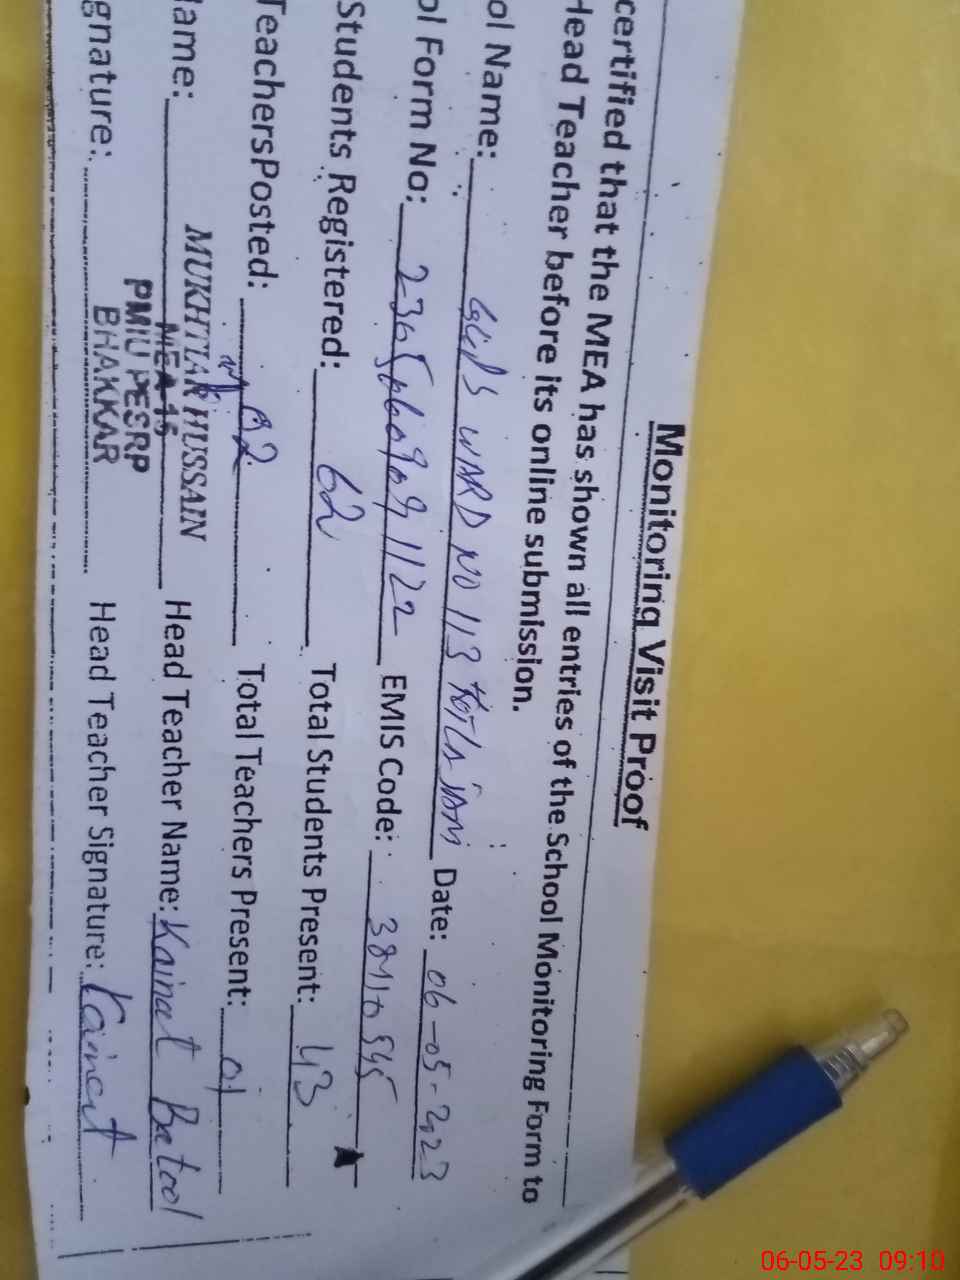 Monitoring Visit Proof
certified that the MEA has shown all entries of the School Monitoring Form to
Head Teacher before its online submission.
ol Name: WARD NO 113 Date: 06-05-2023
ol Form No: EMIS Code:
Students Registered: 62 Total Students Present: 43
TeachersPosted: 02 Total Teachers Present: 01
Name: MUKHTIAR HUSSAIN Head Teacher Name: Kainat Batool
MEA-15
PMIU PESRP
BHAKKAR
gnature: Head Teacher Signature: Kainat
06-05-23 09:10